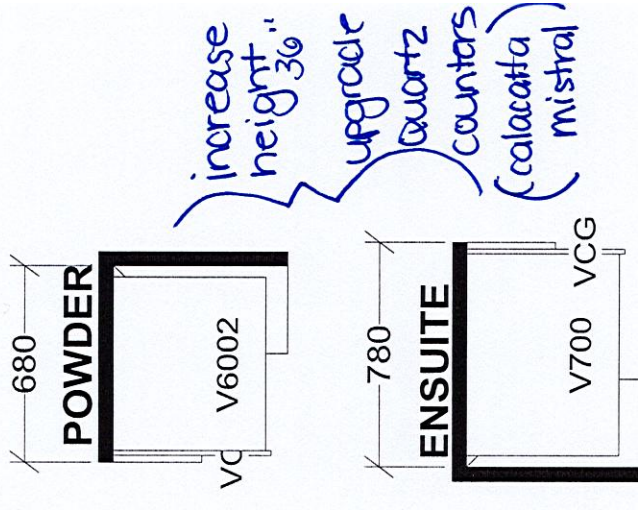 680
POWDER
V6002
VC
780
ENSUITE
V700
VCG
increase
height
36"
upgrade
quartz
counters
(calacatta
mistral)